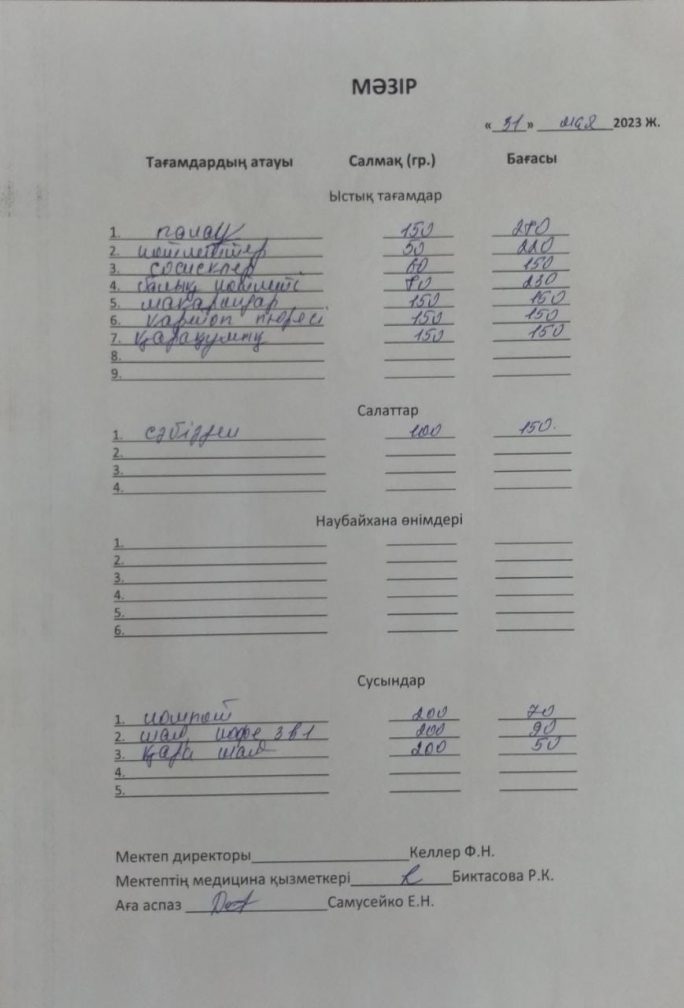 МӘЗІР
« 31 » мая 2023 Ж.
Тағамдардың атауы Салмақ (гр.) Бағасы
Ыстық тағамдар
1. палау 150 270
2. котлеттер 50 220
3. сосисклер 60 150
4. балық котлеті 70 230
5. макарондар 150 150
6. картоп пюресі 150 150
7. қарақұмық 150 150
8.
9.
Салаттар
1. сәбізден 100 150.
2.
3.
4.
Наубайхана өнімдері
1.
2.
3.
4.
5.
6.
Сусындар
1. компот 200 70
2. шай, кофе 3 в 1 200 90
3. қара шай 200 50
4.
5.
Мектеп директоры Келлер Ф.Н.
Мектептің медицина қызметкері Биктасова Р.К.
Аға аспаз Самусейко Е.Н.